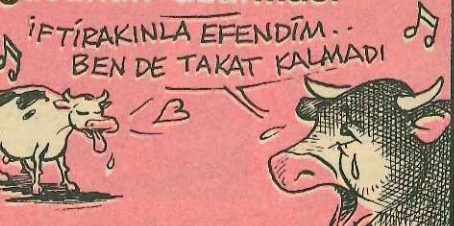 İFTİRAKINLA EFENDİM..
BEN DE TAKAT KALMADI